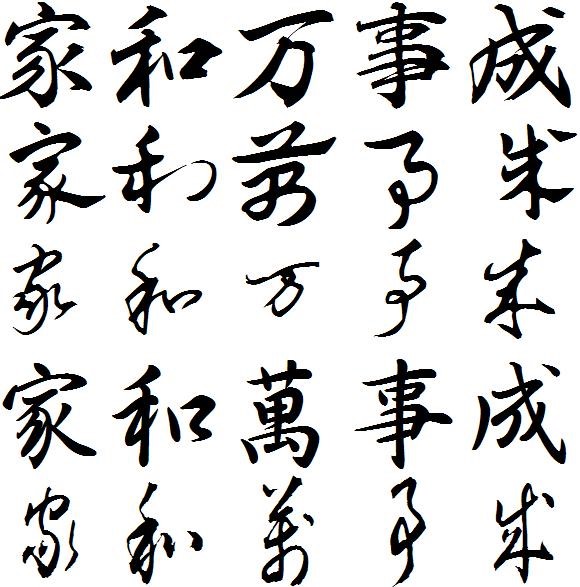 家和万事成
家和萬事成
家和万事成
家和萬事成
家和萬事成